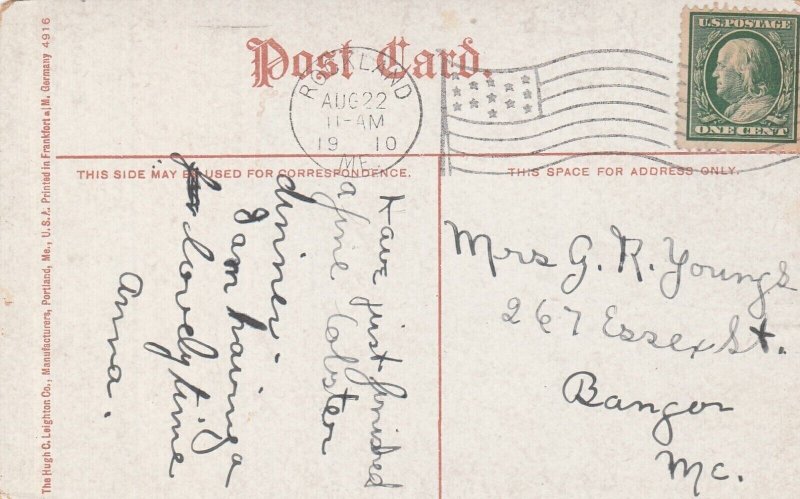 Post Card.
ROCKLAND
AUG 22
11-AM
19 10
ME.
U.S. POSTAGE
ONE CENT
THIS SIDE MAY BE USED FOR CORRESPONDENCE.
THIS SPACE FOR ADDRESS ONLY.
Have just finished
a fine lobster
dinner.
I am having a
lovely time
Anna.
Mrs G. R. Youngs
267 Essex St.
Bangor
Me.
The Hugh C. Leighton Co., Manufacturers, Portland, Me., U.S.A. Printed in Frankfort a/M. Germany 4916